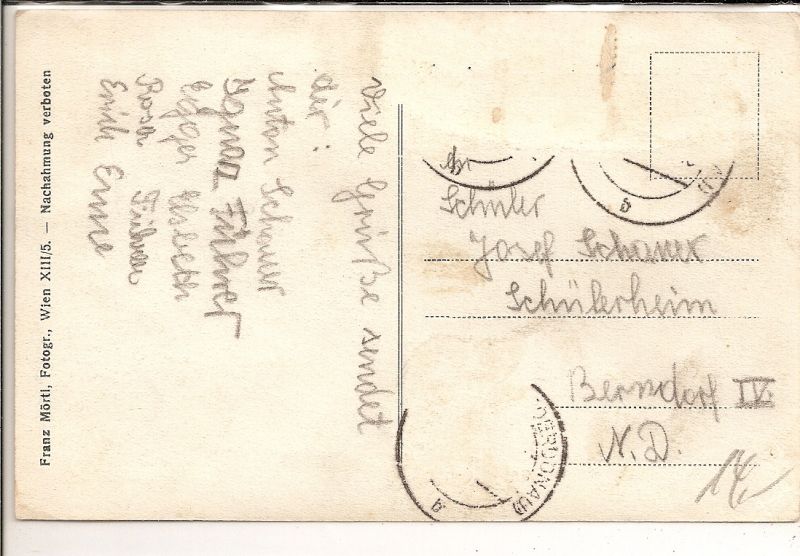 Franz Mörtl, Fotogr., Wien XIII/5. — Nachahmung verboten
Viele Grüße sendet
dir:
Anton Schauer
Ignaz
Egger
Rosa
Erich Enne
An
Schüler
Josef Schauer
Schülerheim
Berndorf IV.
N.D.